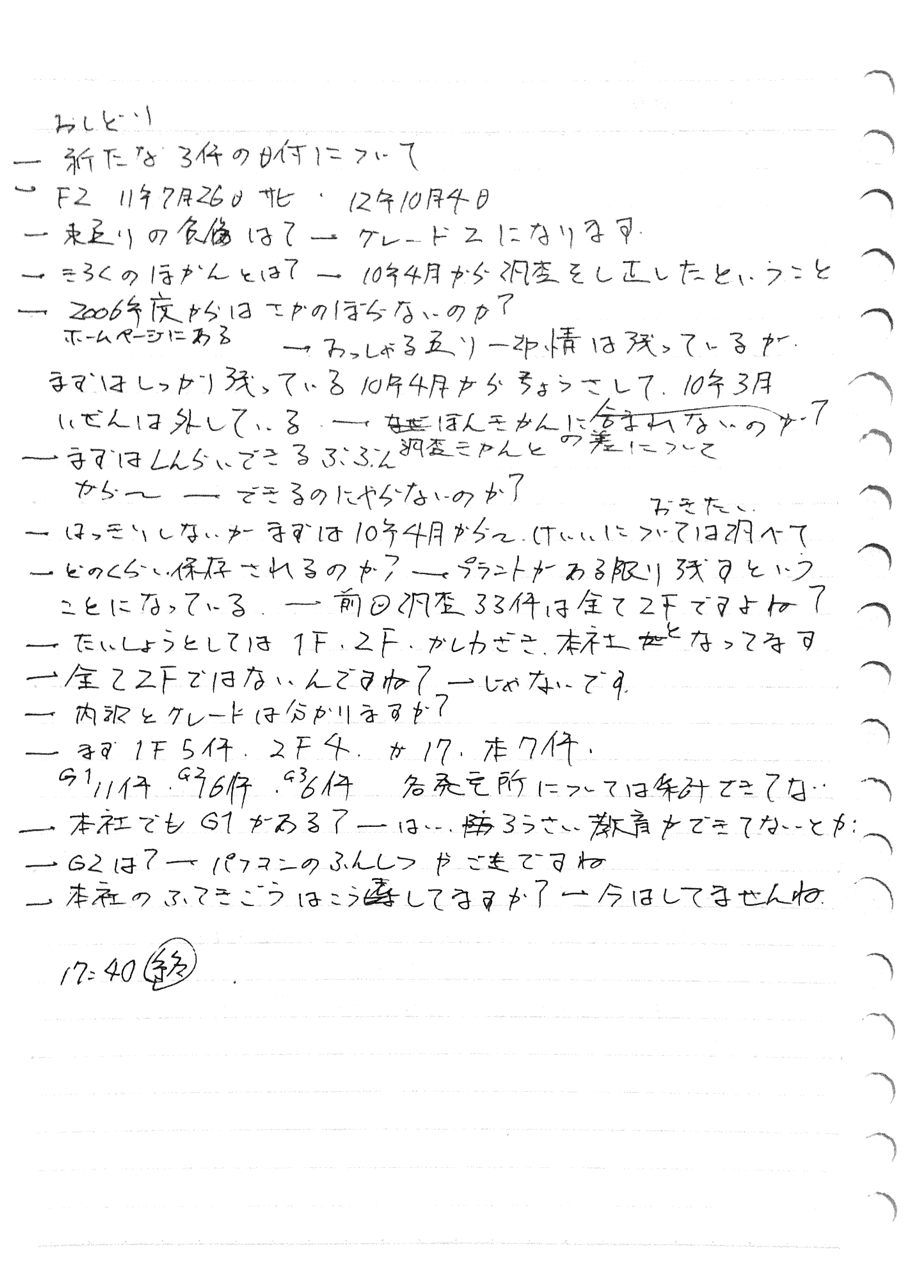 おしどり
― 新たな3件の日付について
― F2 11年7月26日 サヒ ・ 12年10月4日
― 東辺りの負傷は? ― グレード2になります.
― きろくのほかんとは? ― 10年4月から調査をし正したということ
― 2006年度からはさかのぼらないのか?
ホームページにある
→ おっしゃる通り一部情は残っているが.
まずはしっかり残っている10年4月からちょうさして. 10年3月
いぜんは外している. ― ほんきかんに含まれないのか?
調査きかんとの差について
― まずはしんらいできるぶぶん
から〜 ― できるのにやらないのか?
おきたい.
― はっきりしないがまずは10年4月から〜. けいいについては調べて
― どのくらい保存されるのか? ― プラントがある限り残すという
ことになっている. ― 前回調査33件は全て2Fですよね?
― たいしょうとしては 1F. 2F. かしわざき. 本社となってます
― 全て2Fではないんですね? ― じゃないです.
― 内訳とグレードは分かりますか?
― まず 1F5件. 2F4. か17. 本7件.
G1 11件. G2 76件. G3 6件 各発電所については集計できてな..
― 本社でもG1がある? ― はい. ろうさい教育ができてないとか.
― G2は? ― パソコンのふんしつやごまですね
― 本社のふてきごうはこう表してますか? ― 今はしてませんね.
17:40 終